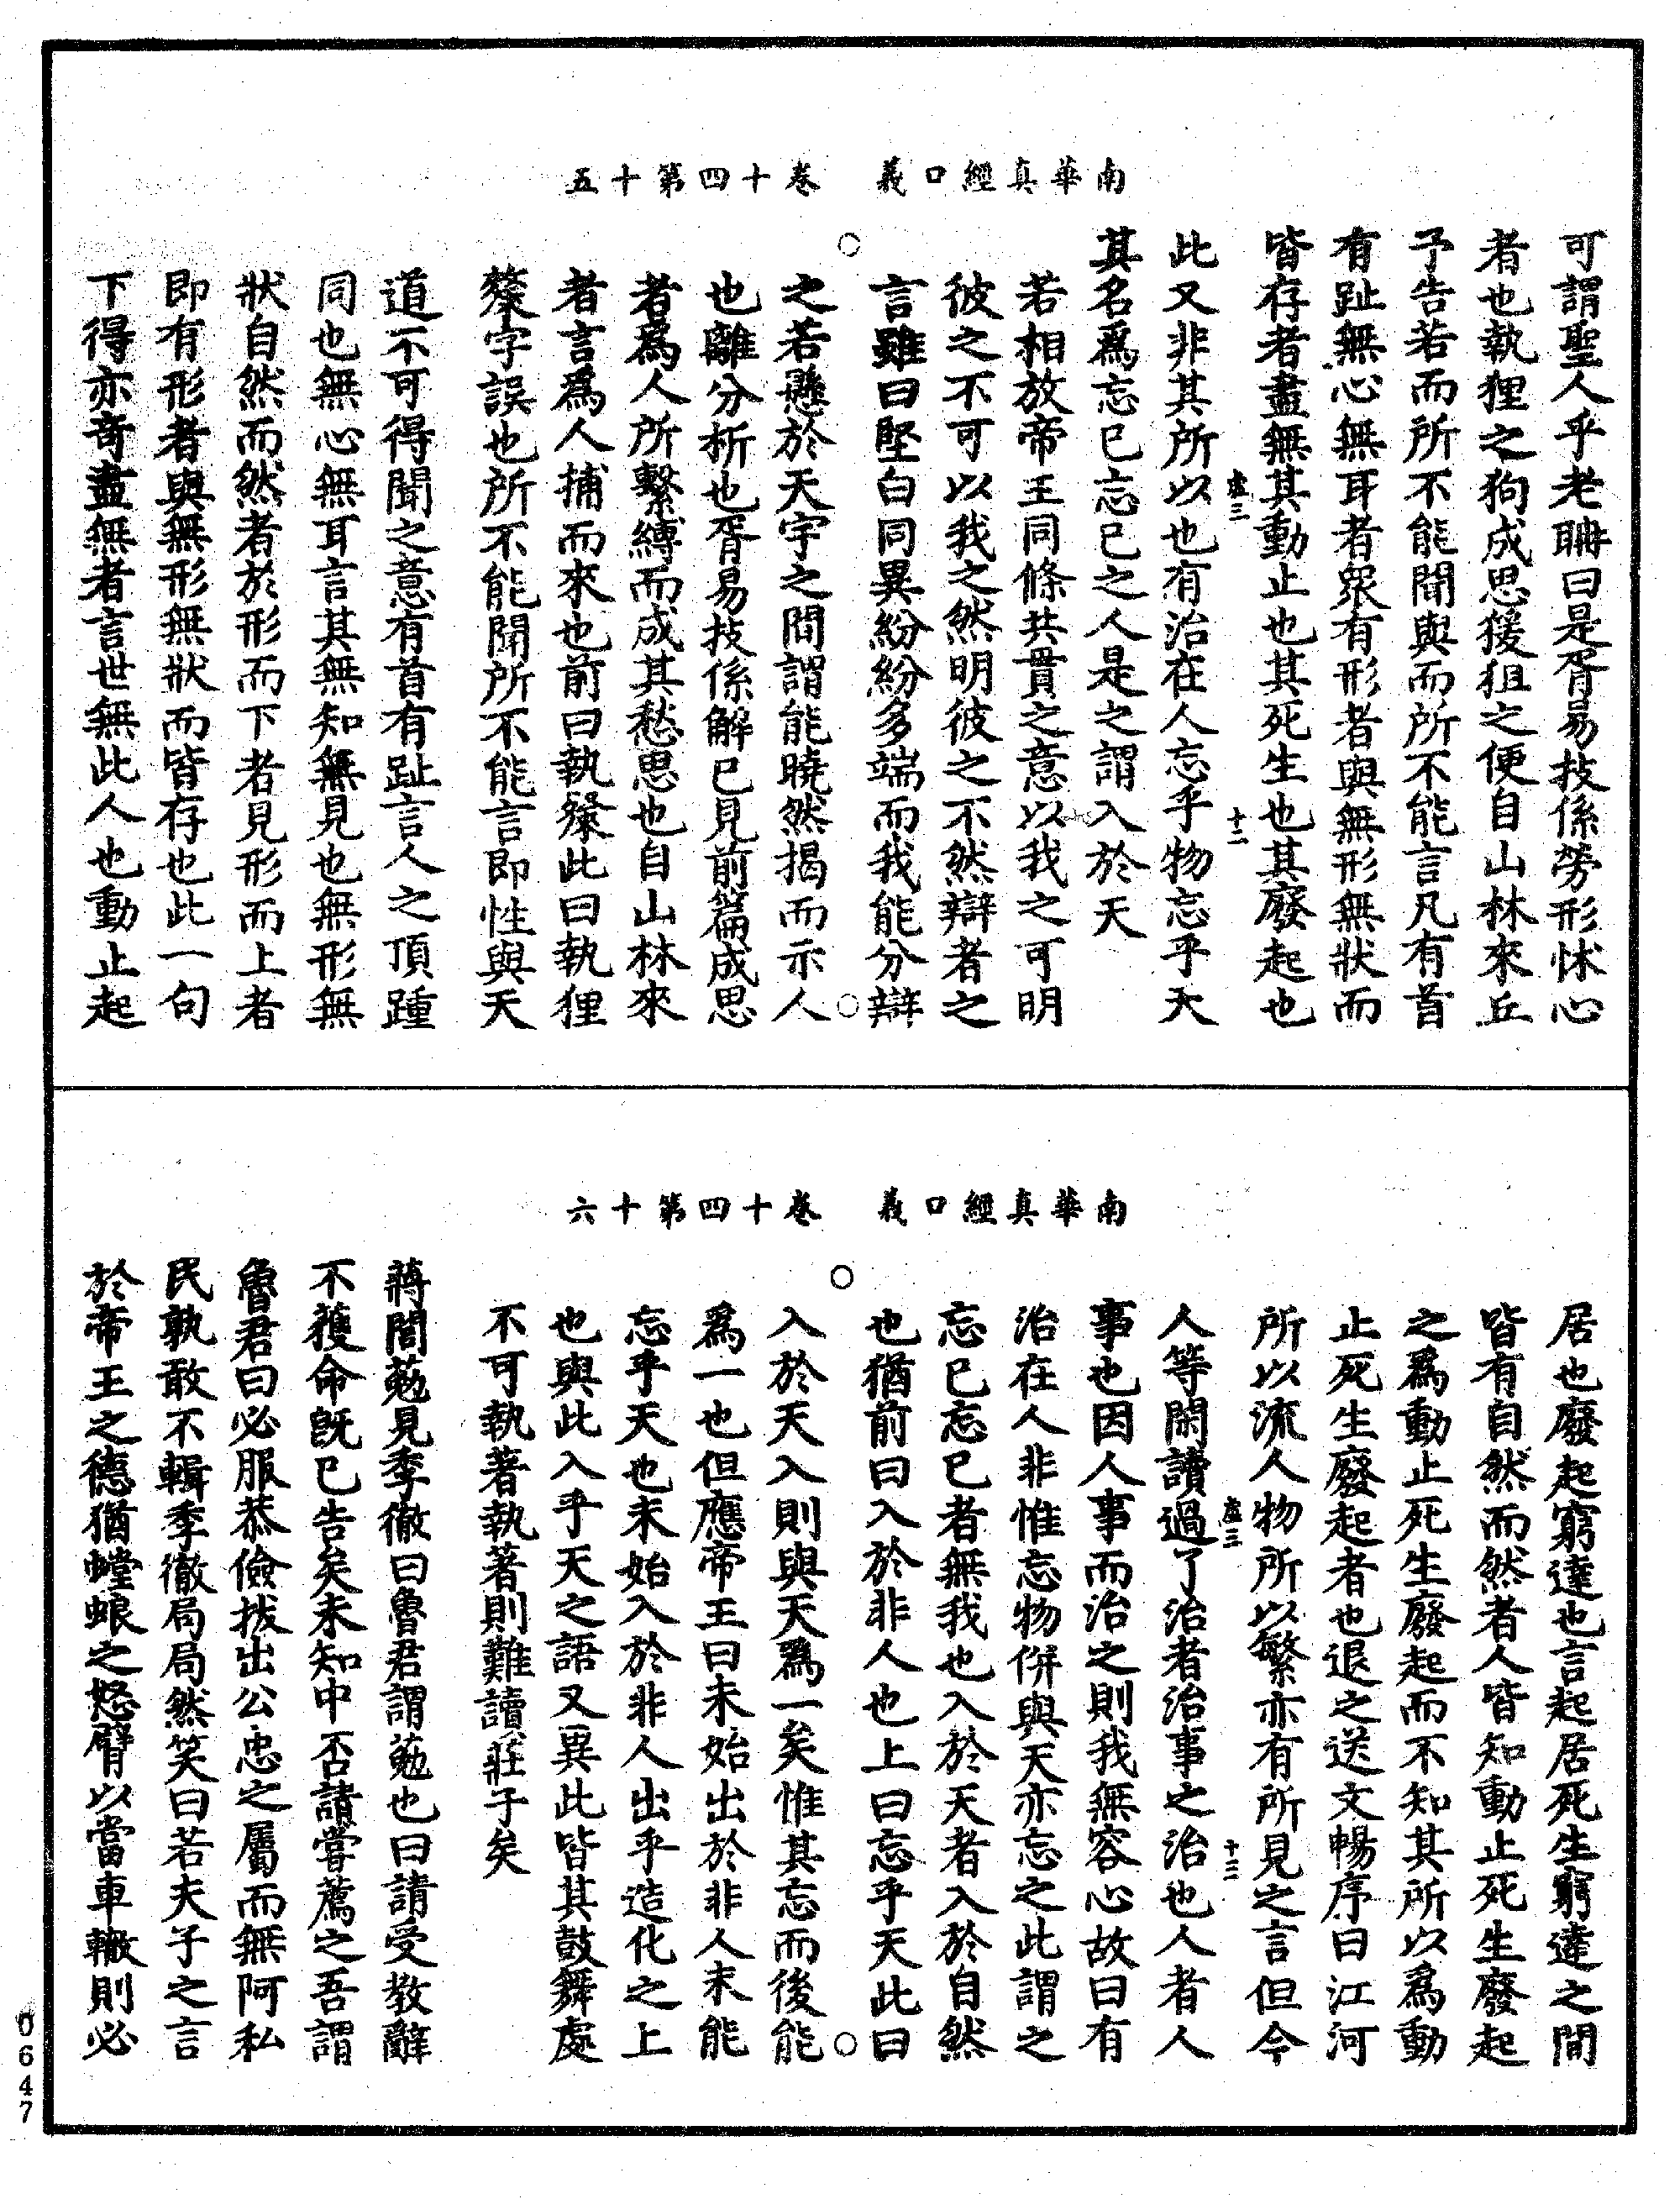 南華真經口義　卷十四第十五
可謂聖人乎老聃曰是胥易技係勞形怵心
者也執狸之狗成思猨狙之便自山林來丘
予告若而所不能聞與而所不能言凡有首
有趾無心無耳者衆有形者與無形無狀而
皆存者盡無其動止也其死生也其廢起也
虛三　十二
此又非其所以也有治在人忘乎物忘乎天
其名爲忘已忘已之人是之謂入於天
若相放帝王同條共貫之意以我之可明
彼之不可以我之然明彼之不然辯者之
言雖曰堅白同異紛紛多端而我能分辯
之若懸於天宇之間謂能曉然揭而示人
也離分析也胥易技係解已見前篇成思
者爲人所繫縛而成其愁思也自山林來
者言爲人捕而來也前曰執斄此曰執狸
斄字誤也所不能聞所不能言即性與天
道不可得聞之意有首有趾言人之頂踵
同也無心無耳言其無知無見也無形無
狀自然而然者於形而下者見形而上者
即有形者與無形無狀而皆存也此一句
下得亦奇盡無者言世無此人也動止起
南華真經口義　卷十四第十六
居也廢起窮達也言起居死生窮達之間
皆有自然而然者人皆知動止死生廢起
之爲動止死生廢起而不知其所以爲動
止死生廢起者也退之送文暢序曰江河
所以流人物所以繁亦有所見之言但今
虛三　十三
人等閑讀過了治者治事之治也人者人
事也因人事而治之則我無容心故曰有
治在人非惟忘物併與天亦忘之此謂之
忘已忘已者無我也入於天者入於自然
也猶前曰入於非人也上曰忘乎天此曰
入於天入則與天爲一矣惟其忘而後能
爲一也但應帝王曰未始出於非人未能
忘乎天也未始入於非人出乎造化之上
也與此入乎天之語又異此皆其鼓舞處
不可執著執著則難讀莊子矣
蔣閭葂見季徹曰魯君謂葂也曰請受教辭
不獲命旣已告矣未知中否請嘗薦之吾謂
魯君曰必服恭儉拔出公忠之屬而無阿私
民孰敢不輯季徹局局然笑曰若夫子之言
於帝王之德猶螳蜋之怒臂以當車轍則必
0647